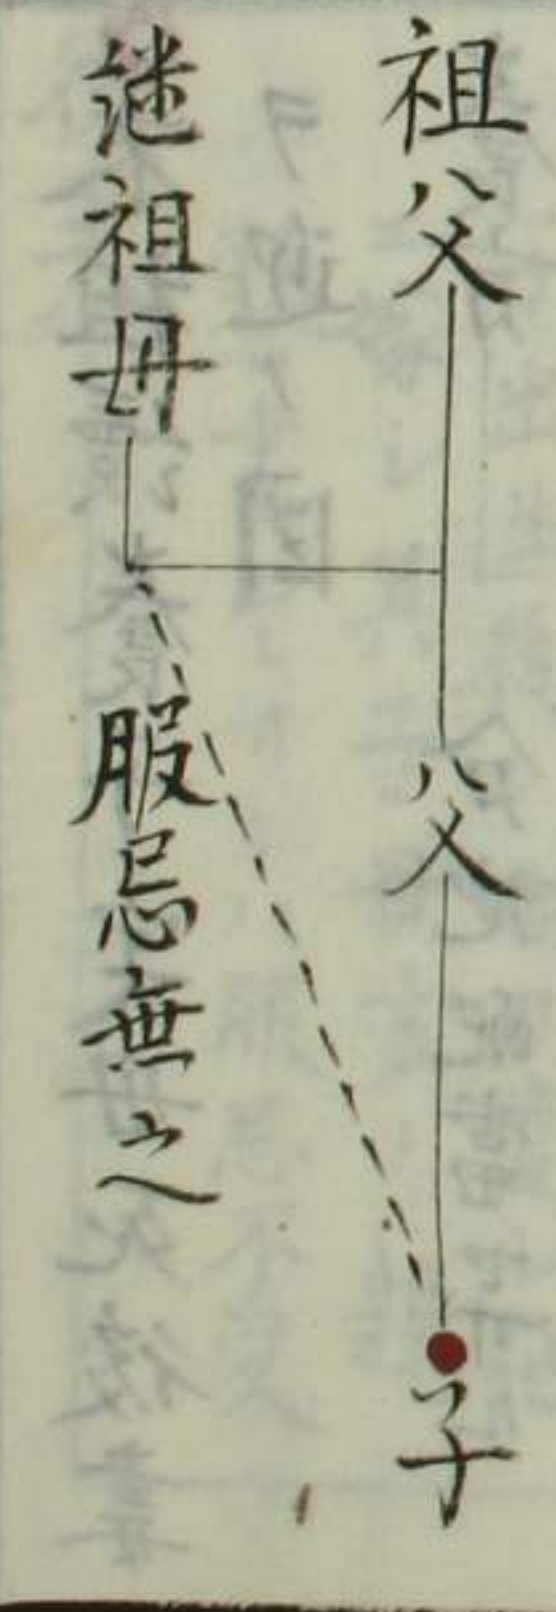 祖父
父
子
継祖母
服忌無之